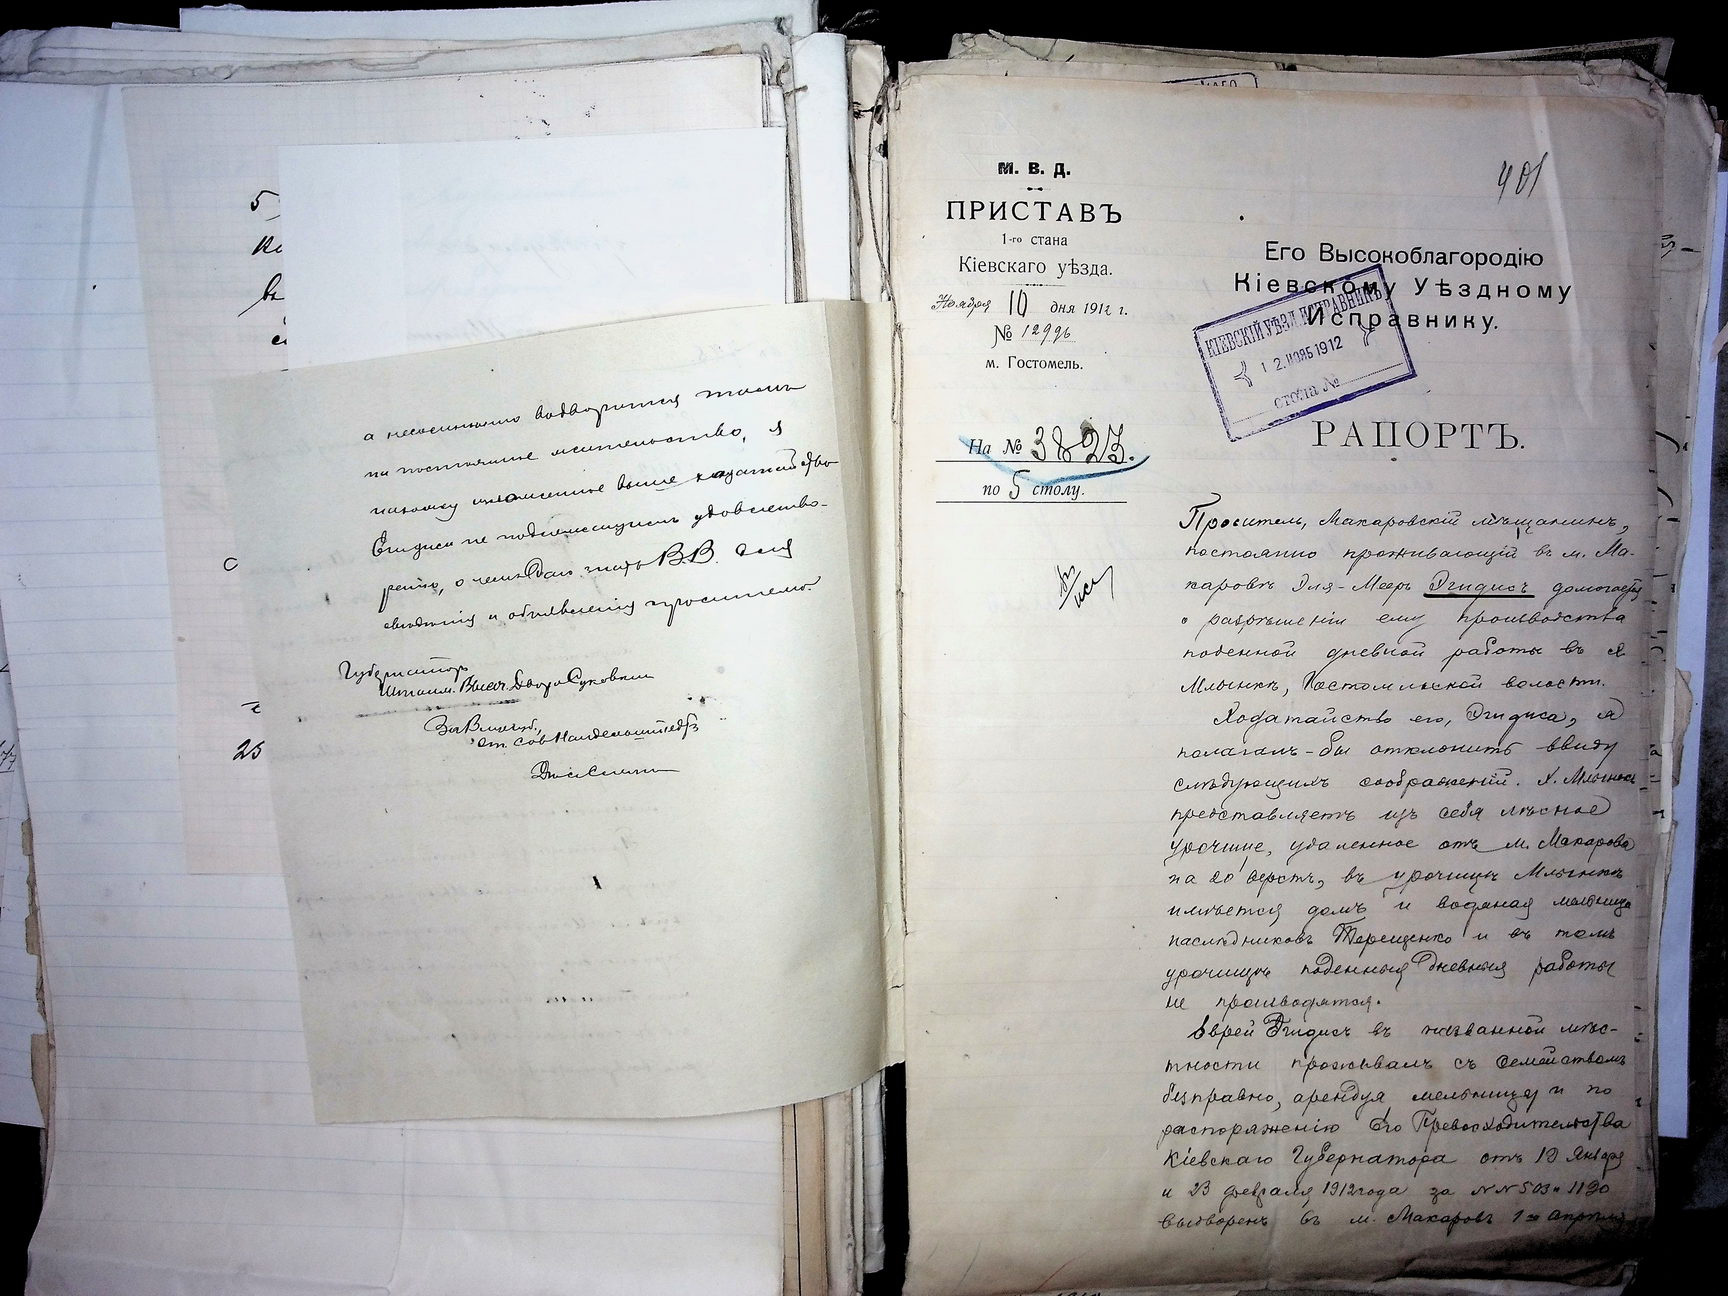 5
а несомненно водворится тамъ
на постоянное жительство, я
нахожу изложенное выше ходатайство
Эгидиса не подлежащимъ удовлетво-
ренію, о чемъ даю знать В.В. для
свѣдѣнія и объявленія просителю.
Губернаторъ
Шталм. Высоч. Двора Суковкинъ
25
М. В. Д.
ПРИСТАВЪ
1-го стана
Кіевскаго уѣзда.
Ноября 10 дня 1912 г.
№ 12996
м. Гостомель.
На № 3827.
по 5 столу.
401
Его Высокоблагородію
Кіевскому Уѣздному
Исправнику.
КІЕВСКІЙ УѢЗД. ИСПРАВНИКЪ
12. НОЯБ 1912
стола №
РАПОРТЪ.
Проситель, Макаровскій мѣщанинъ,
постоянно проживающій въ м. Ма-
каровѣ Эля-Мееръ Эгидисъ домогается
о разрѣшеніи ему производства
поденной дневной работы въ х.
Млынкѣ, Гостомльской волости.
Ходатайство его, Эгидиса, я
полагалъ-бы отклонить ввиду
слѣдующихъ соображеній. Х. Млынокъ
представляетъ изъ себя лѣсное
урочище, удаленное отъ м. Макарова
на 20 верстъ, въ урочищѣ Млынкѣ
имѣется домъ и водяная мельница
наслѣдниковъ Терещенко и въ томъ
урочищѣ поденныя дневныя работы
не производятся.
Еврей Эгидисъ въ названной мѣс-
тности проживалъ съ семействомъ
безправно, арендуя мельницу и по
распоряженію Его Превосходительства
Кіевскаго Губернатора отъ 10 Января
и 23 февраля 1912 года за №№ 503 и 1190
выдворенъ въ м. Макаровъ 1го апрѣля